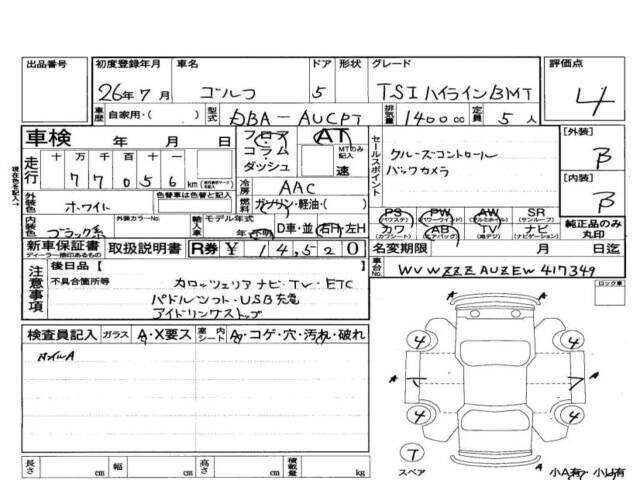 出品番号 初度登録年月 車名 ドア 形状 グレード 評価点
26年7月 ゴルフ 5 TSI ハイラインBMT 4
車歴 自家用・( ) 型式 DBA-AUCPT 排気量 1400cc 定員 5人
車検 年 月 日 フロア コラム ダッシュ AT MTのみ記入 速
走行 十 万 千 百 十 一
77056 km
セールスポイント
クルーズコントロール
バックカメラ
[外装] B
[内装] B
冷房 AAC
外装色 ホワイト 色替車は元色( ) 燃料 ガソリン・軽油・( )
内装色 ブラック系 外装カラーNo. 輸入車 モデル年式 年 不明 D車・並 右H・左H
PS (パワステ) PW (パワーウインド) AW (アルミホイル) SR (サンルーフ)
カワ (カワシート) AB (エアバッグ) TV (地デジ) ナビ (ナビゲーション)
純正品のみ丸印
新車保証書 ディーラー捺印あるもの 取扱説明書 R券 ¥ 14,520 名変期限 月 日迄
車台No. WVWZZZAUZEW417349
注意事項
後日品【 】
不具合箇所等 カロッツェリア ナビ・TV・ETC
パドルシフト・USB充電
アイドリングストップ
ロック車
検査員記入 ガラス A・X要ス 室内シート A・コゲ・穴・汚れ・破れ
ホイルA
4 4
A A
4 4
A
T
スペア
小A有 小U有
長さ cm 幅 cm 高さ cm 積載量 kg